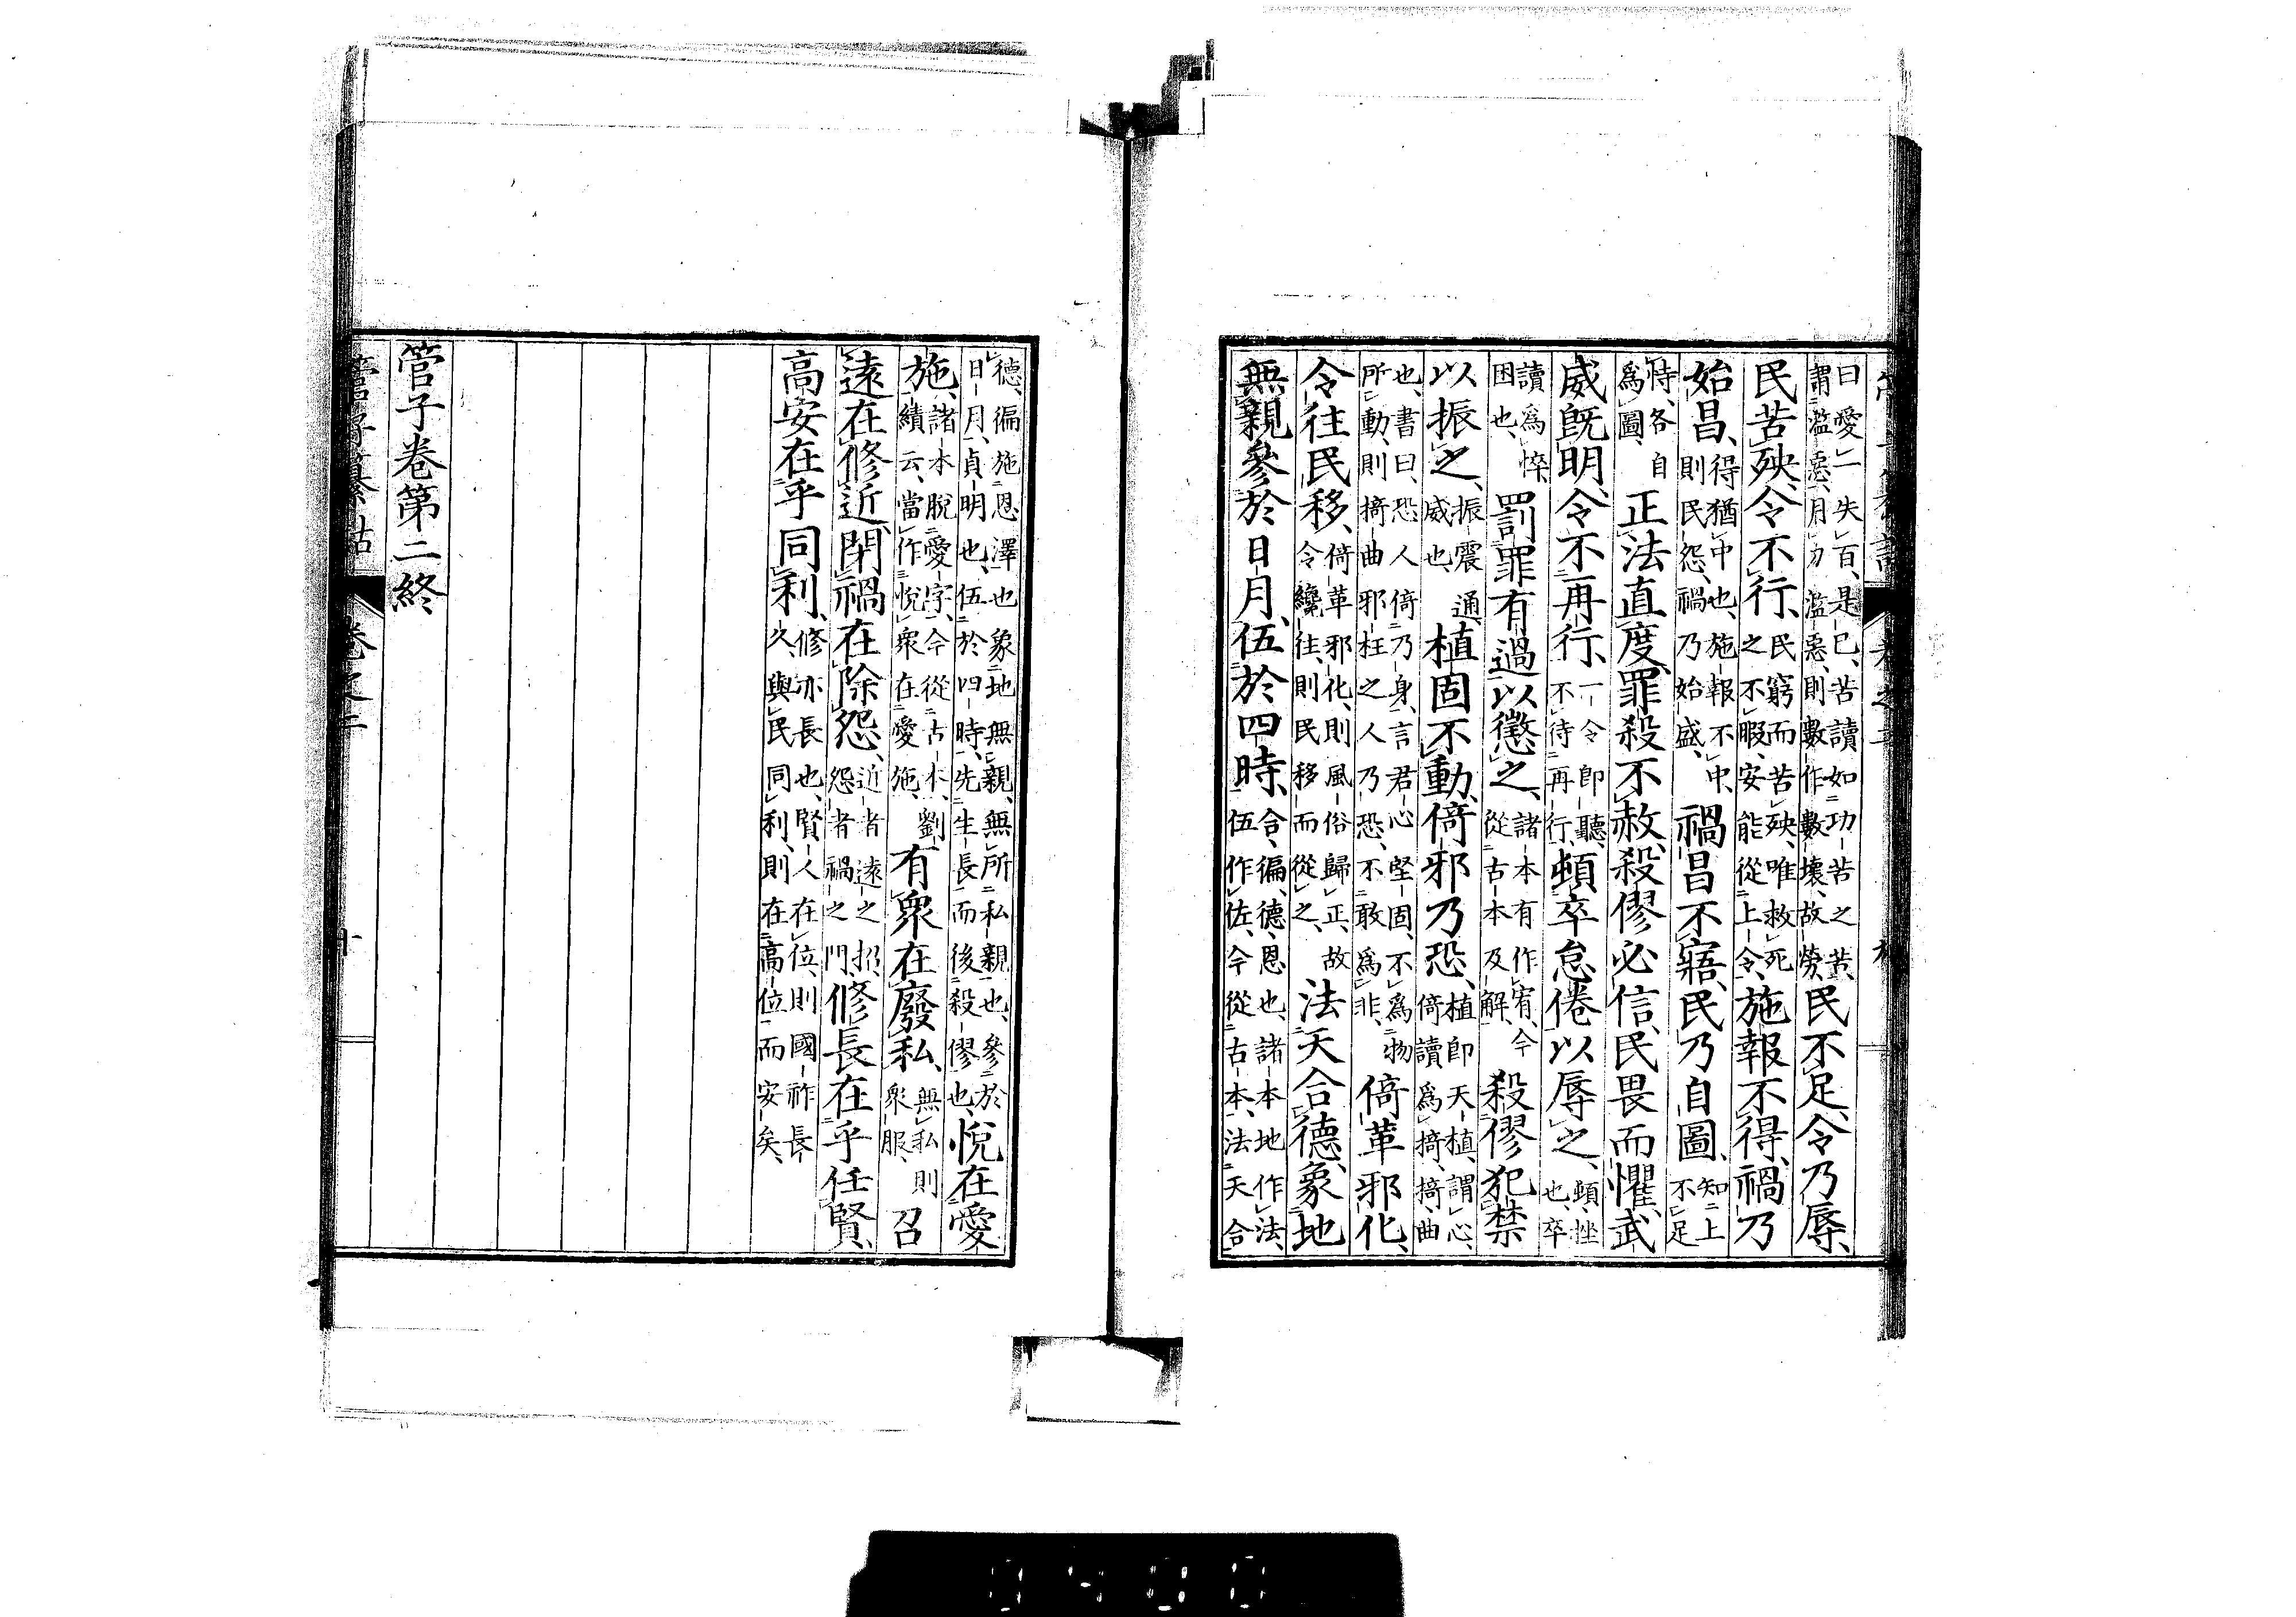 曰愛一失百是已苦讀如功苦之苦謂濫惡月力濫惡則數作數壞故勞民不足令乃辱、
民苦殃、令不行、民窮而苦殃、唯救死之不暇、安能從上令、施報不得、禍乃
始昌、得猶中也、施報不中、則民怨、禍乃始盛、禍昌不寤、民乃自圖、知上不足
恃、各自爲圖、正法直度、罪殺不赦、殺僇必信、民畏而懼、武
威既明、令不再行、一令即聽、不待再行、頓卒怠倦以辱之、頓挫也、卒
讀爲悴、困也、罰罪有過以懲之、諸本有作宥、今從古本及解、殺僇犯禁
以振之、振震通威也、植固不動、倚邪乃恐、植即天植、謂心、倚讀爲掎、掎曲
也、書曰、恐人倚乃身、言君心堅固、不爲物所動、則掎曲邪枉之人乃恐、不敢爲非、倚革邪化、
令往民移、倚革邪化、則風俗歸正、故令纔往、則民移而從之、法天合德、象地
無親、參於日月、伍於四時、合、徧、德、恩也、諸本地作法、伍作佐、今從古本、法天合
德、徧施恩澤也象地無親、無所私親也、參於日月、貞明也、伍於四時、先生長而後殺僇也、悅在愛
施、諸本脫愛字、今從古本、劉績云、當作悅衆在愛施、有衆在廢私、無私則衆服、召
遠在修近、閉禍在除怨、近者遠之招、怨者禍之門、修長在乎任賢、
高安在乎同利、修亦長也、賢人在位、則國祚長久、與民同利、則在高位而安矣、
管子卷第二終